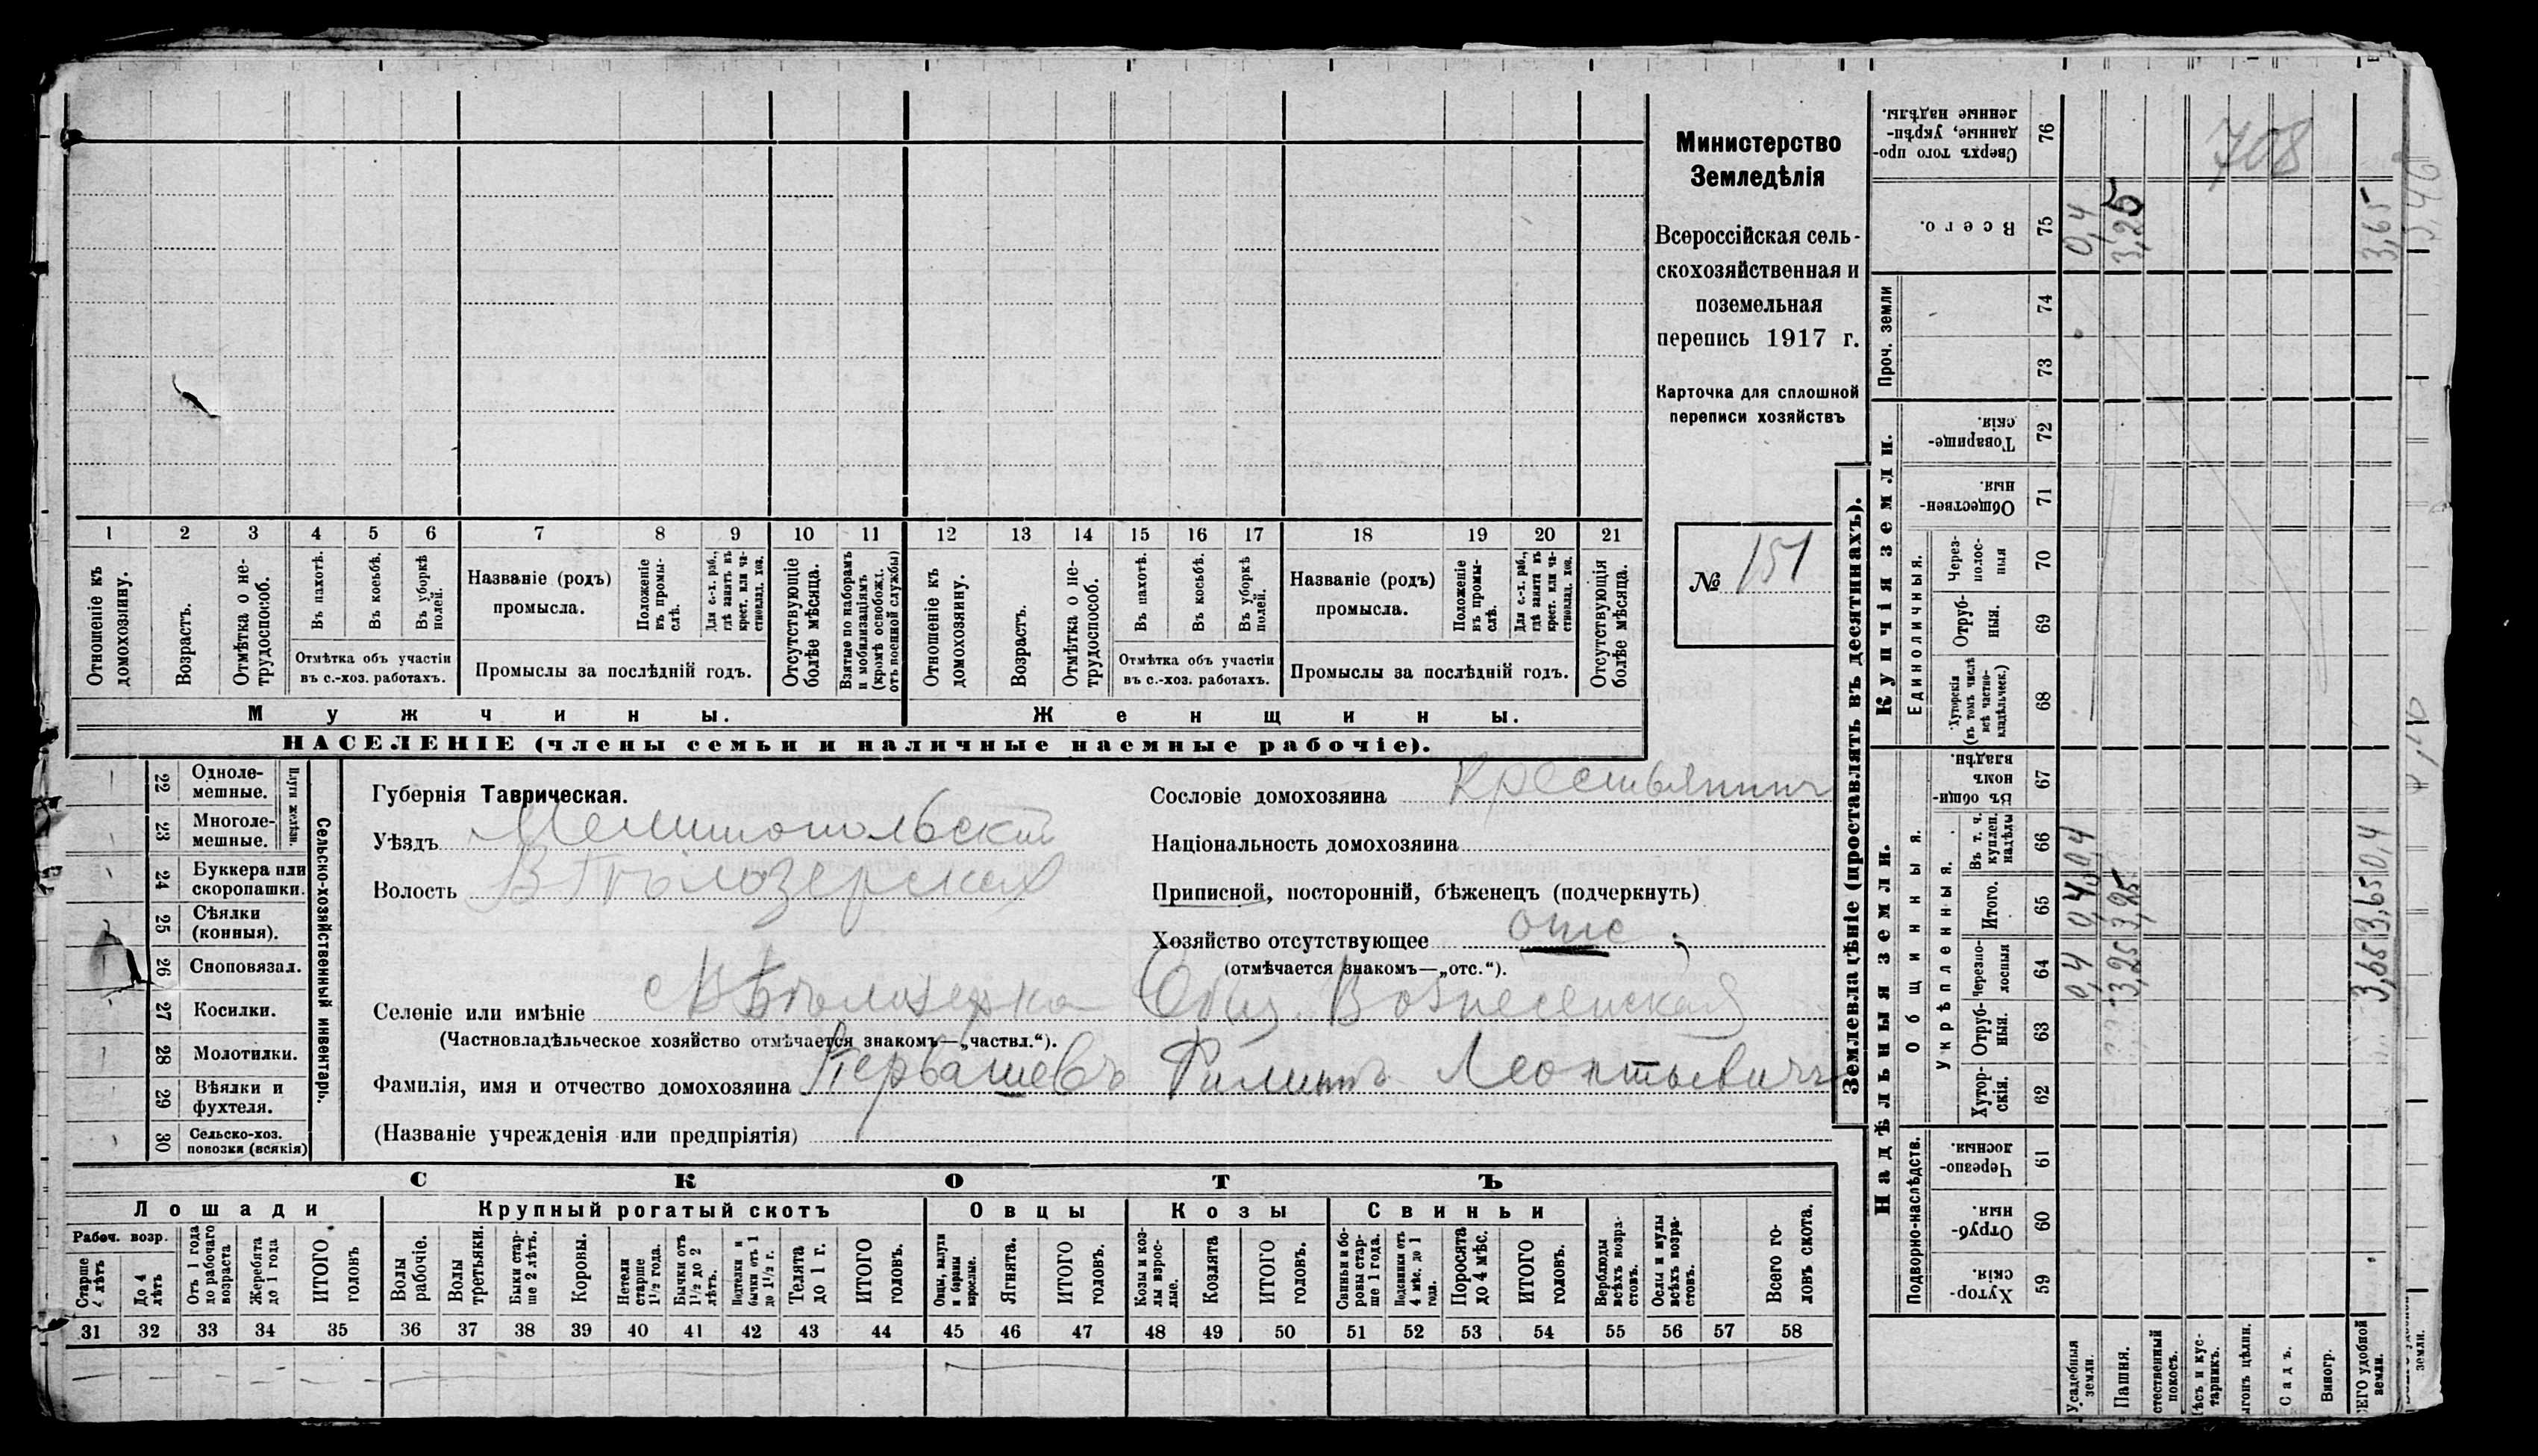 Министерство
Земледѣлія
Всероссійская сель-
скохозяйственная и
поземельная
перепись 1917 г.
Карточка для сплошной
переписи хозяйствъ
№ 151
1 2 3 4 5 6 7 8 9 10 11 12 13 14 15 16 17 18 19 20 21
Отношеніе къ домохозяину.
Возрастъ.
Отмѣтка о не-трудоспособ.
Въ пахотѣ.
Въ косьбѣ.
Въ уборкѣ полей.
Названіе (родъ) промысла.
Положеніе въ промы-слѣ.
Для с.-х. раб., гдѣ занятъ въ крест. или ча-стновлад. хоз.
Отсутствующіе болѣе мѣсяца.
Взятые по наборамъ и мобилизаціямъ (кромѣ освобожд. отъ военной службы)
Отношеніе къ домохозяину.
Возрастъ.
Отмѣтка о не-трудоспособ.
Въ пахотѣ.
Въ косьбѣ.
Въ уборкѣ полей.
Названіе (родъ) промысла.
Положеніе въ промы-слѣ.
Для с.-х. раб., гдѣ занятъ въ крест. или ча-стновлад. хоз.
Отсутствующія болѣе мѣсяца.
Отмѣтка объ участіи въ с.-хоз. работахъ.
Промыслы за послѣдній годъ.
Отмѣтка объ участіи въ с.-хоз. работахъ.
Промыслы за послѣдній годъ.
Мужчины.
Женщины.
НАСЕЛЕНІЕ (члены семьи и наличные наемные рабочіе).
22 Одноле-мешные.
23 Многоле-мешные.
Плуги желѣзн.
24 Буккера или скоропашки.
25 Сѣялки (конныя).
26 Сноповязал.
27 Косилки.
28 Молотилки.
29 Вѣялки и фухтеля.
30 Сельско-хоз. повозки (всякія)
Сельско-хозяйственный инвентарь.
Губернія Таврическая.
Уѣздъ Мелитопольскій
Волость В Бѣлозерская
Сословіе домохозяина Крестьянинъ
Національность домохозяина
Приписной, посторонній, бѣженецъ (подчеркнуть)
Хозяйство отсутствующее отс
(отмѣчается знакомъ—„отс.“).
Селеніе или имѣніе с В Бѣлозерка Общ. Вознесенская
(Частновладѣльческое хозяйство отмѣчается знакомъ—„частвл.“).
Фамилія, имя и отчество домохозяина Первашевъ Филиппъ Леонтьевичъ
(Названіе учрежденія или предпріятія)
СКОТЪ
Лошади
Крупный рогатый скотъ
Овцы
Козы
Свиньи
Рабоч. возр.
Старше 4 лѣтъ
До 4 лѣтъ
Отъ 1 года до рабочаго возраста
Жеребята до 1 года
ИТОГО головъ
Волы рабочіе.
Волы третьяки.
Быки стар-ше 2 лѣтъ.
Коровы.
Нетели старше 1½ года.
Бычки отъ 1½ до 2 лѣтъ.
Подтелки и бычки отъ 1 до 1½ г.
Телята до 1 г.
ИТОГО головъ.
Овцы, валухи и бараны взрослые.
Ягнята.
ИТОГО головъ.
Козы и коз-лы взрос-лые.
Козлята
ИТОГО головъ.
Свиньи и бо-ровы стар-ше 1 года.
Подсвинки отъ 4 мѣс. до 1 года.
Поросята до 4 мѣс.
ИТОГО головъ.
Верблюды всѣхъ возра-стовъ.
Ослы и мулы всѣхъ возра-стовъ.
Всего го-ловъ скота.
31 32 33 34 35 36 37 38 39 40 41 42 43 44 45 46 47 48 49 50 51 52 53 54 55 56 57 58
Землевладѣніе (проставлять въ десятинахъ).
Надѣльныя земли.
Купчія земли.
Проч. земли
Подворно-наслѣдств.
Общинныя.
Укрѣпленныя.
Единоличныя.
59 Хутор-скія.
60 Отруб-ныя.
61 Черезпо-лосныя.
62 Хутор-скія.
63 Отруб-ныя.
64 Черезпо-лосныя
65 Итого.
66 Въ т. ч. куплен. надѣлы
67 Въ общи-номъ владѣн.
68 Хуторскія (въ томъ числѣ всѣ частно-владѣльческ.)
69 Отруб-ныя.
70 Через-полос-ныя
71 Обществен-ныя.
72 Товарище-скія.
73
74
75 Всего.
76 Сверхъ того про-данные, укрѣп-ленные надѣлы.
Усадебныя земли. 0,4 0,4 0,4 0,4
Пашня. 3,25 3,25 3,25
стественный покосъ.
ѣсъ и кус-тарникъ.
ыгонъ цѣлин.
Садъ.
Виногр.
ЕГО удобной земли. 3,65 3,65 0,4 3,65
земли.
708